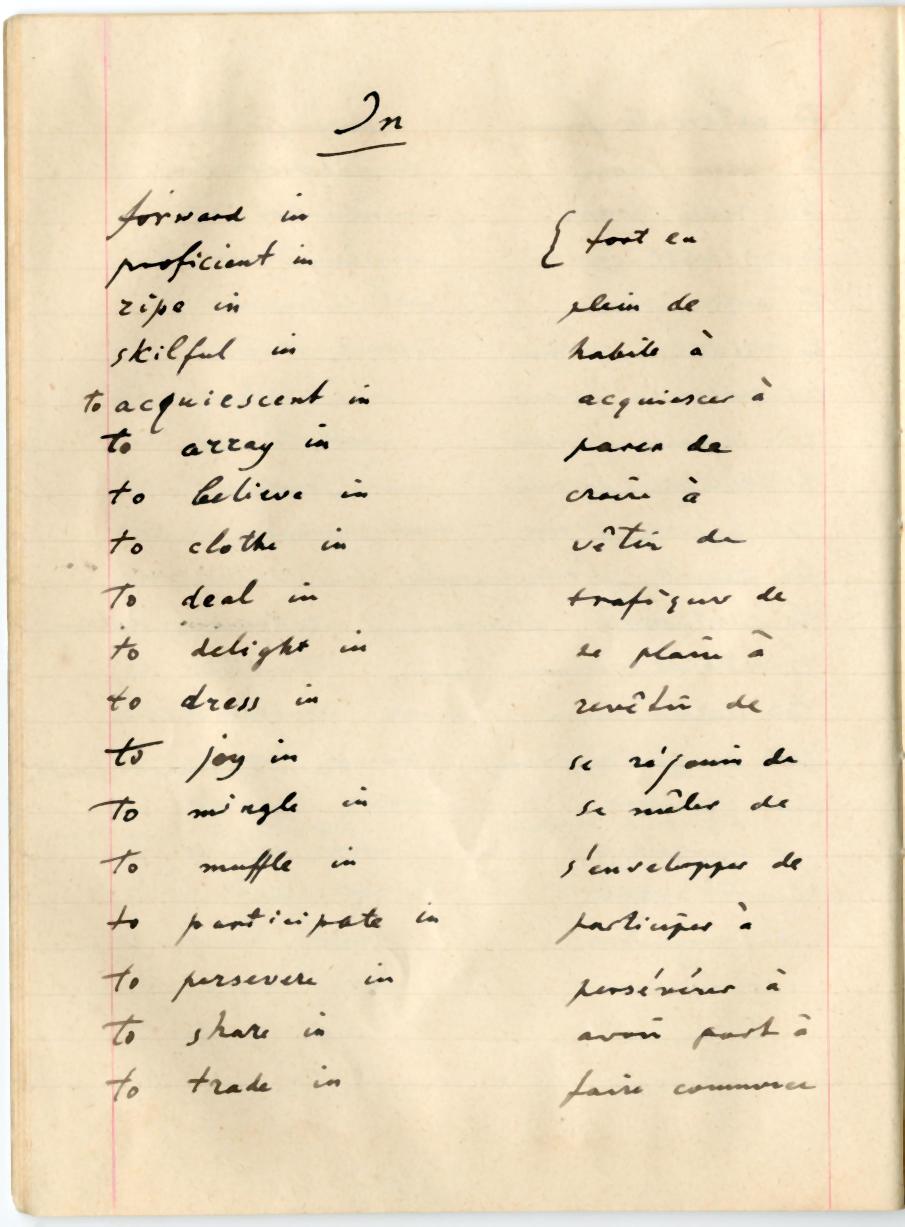 In
forward in
{ fort en
proficient in
ripe in plein de
skilful in habile à
to acquiescent in acquiescer à
to array in parer de
to believe in croire à
to clothe in vêtir de
to deal in trafiquer de
to delight in se plaire à
to dress in revêtir de
to joy in se réjouir de
to mingle in se mêler de
to muffle in s'envelopper de
to participate in participer à
to persevere in persévérer à
to share in avoir part à
to trade in faire commerce